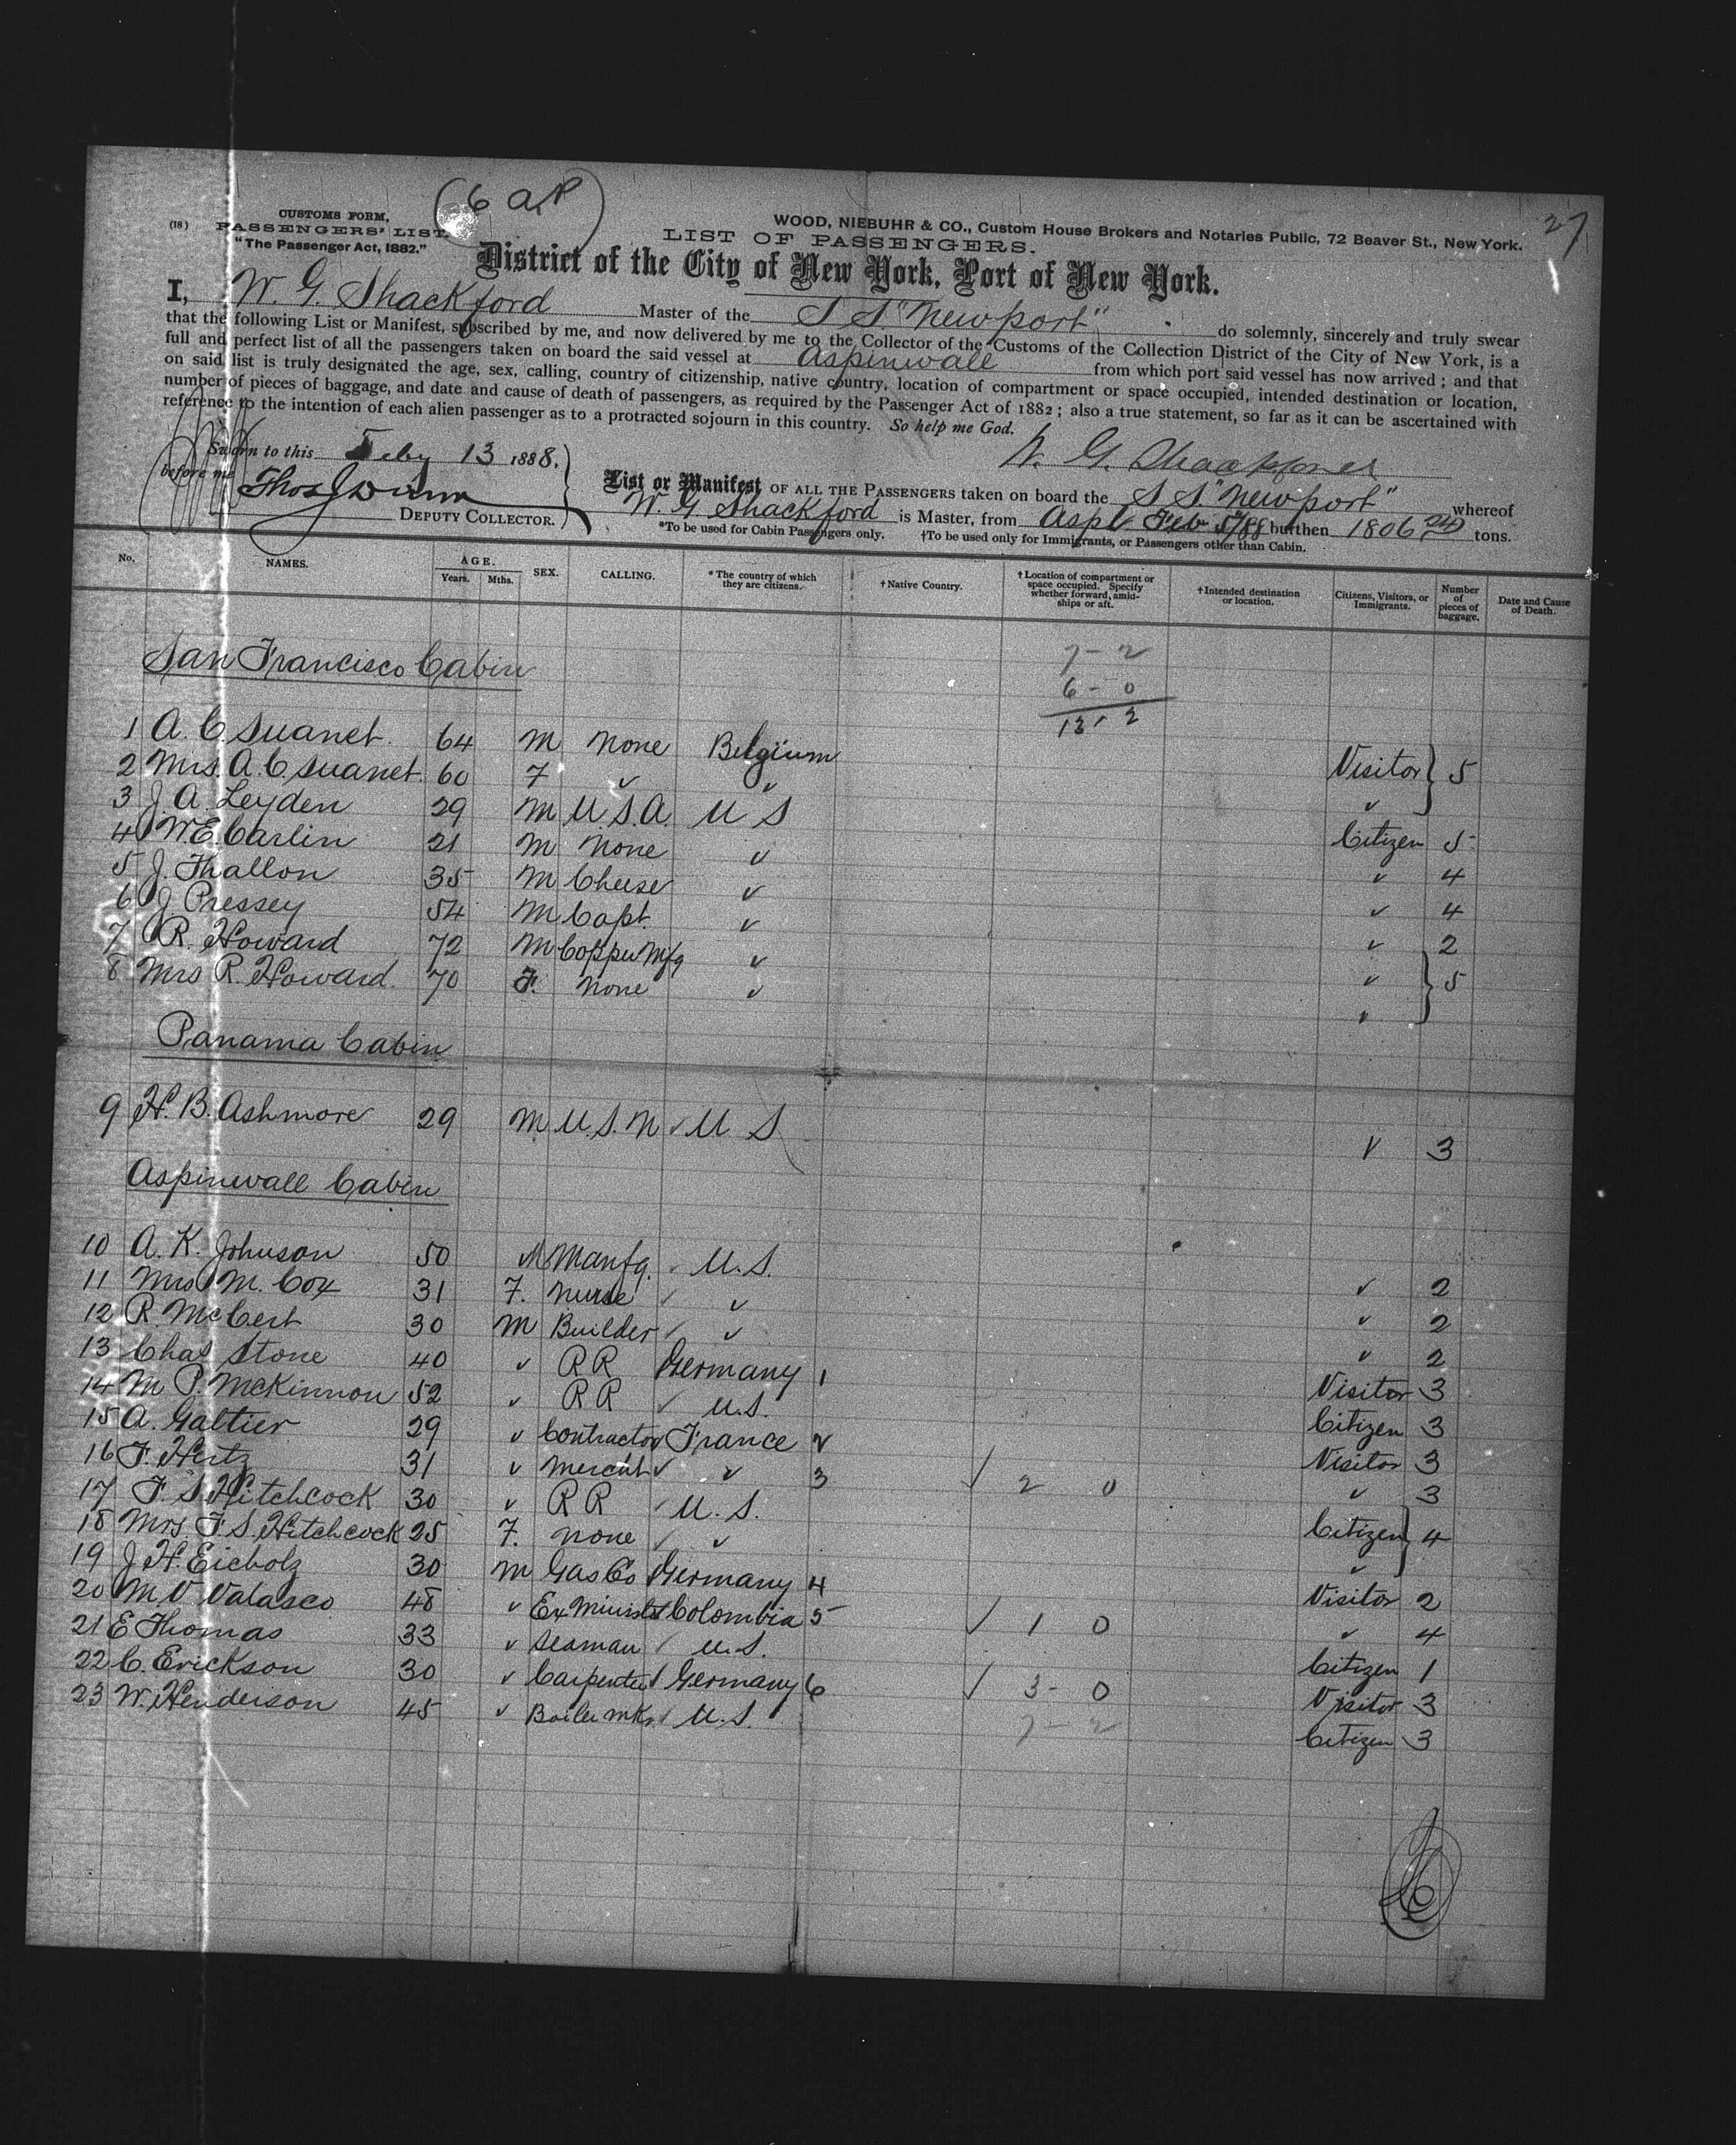 (6 a.P)
27
(18) CUSTOMS FORM,
PASSENGERS' LIST.
"The Passenger Act, 1882."
WOOD, NIEBUHR & CO., Custom House Brokers and Notaries Public, 72 Beaver St., New York.
LIST OF PASSENGERS.
District of the City of New York, Port of New York.
I, W. G. Shackford Master of the S S. "Newport" do solemnly, sincerely and truly swear
that the following List or Manifest, subscribed by me, and now delivered by me to the Collector of the Customs of the Collection District of the City of New York, is a
full and perfect list of all the passengers taken on board the said vessel at Aspinwall from which port said vessel has now arrived; and that
on said list is truly designated the age, sex, calling, country of citizenship, native country, location of compartment or space occupied, intended destination or location,
number of pieces of baggage, and date and cause of death of passengers, as required by the Passenger Act of 1882; also a true statement, so far as it can be ascertained with
reference to the intention of each alien passenger as to a protracted sojourn in this country. So help me God.
Sworn to this Feby 13 1888.
W. G. Shackford
before me Thos J Dunn
DEPUTY COLLECTOR.
List or Manifest OF ALL THE PASSENGERS taken on board the S S. "Newport" whereof
W. G Shackford is Master, from Aspl Feb 5/88 burthen 1806 24 tons.
*To be used for Cabin Passengers only. †To be used only for Immigrants, or Passengers other than Cabin.
No. NAMES. AGE. Years. Mths. SEX. CALLING. *The country of which they are citizens. †Native Country. †Location of compartment or space occupied. Specify whether forward, amidships or aft. †Intended destination or location. Citizens, Visitors, or Immigrants. Number of pieces of baggage. Date and Cause of Death.
San Francisco Cabin
7 - 2
6 - 0
13 - 2
1 A. C. Suanet. 64 M None Belgium Visitor } 5
2 Mrs. A. C. Suanet. 60 F ✓ ✓ ✓
3 J. A. Leyden 29 M U.S.A. U S Citizen 5
4 W. E. Carlin 21 M None ✓ ✓ 4
5 J. Thallon 35 M Cheese ✓ ✓ 4
6 J Pressey 54 M Capt. ✓ ✓ 2
7 R. Howard 72 M Copper Mfg ✓ ✓ } 5
8 Mrs R. Howard. 70 F. None ✓ ✓
Panama Cabin
9 H. B. Ashmore 29 M U.S.N ✓ U S ✓ 3
Aspinwall Cabin
10 A. K. Johnson 50 M Manfg. ✓ U.S. ✓ 2
11 Mrs M. Cox 31 F. Nurse ✓ ✓ ✓ 2
12 R. McCert 30 M Builder ✓ ✓ ✓ 2
13 Chas Stone 40 ✓ R R Germany 1 Visitor 3
14 M P. McKinnon 52 ✓ R R ✓ U.S. Citizen 3
15 A. Galtier 29 ✓ Contractor France 2 Visitor 3
16 F. Hertz 31 ✓ Mercht ✓ ✓ 3 ✓ 2 0 ✓ 3
17 F. S. Hitchcock 30 ✓ R R ✓ U. S. Citizen } 4
18 Mrs. F. S. Hitchcock 25 F. None ✓ ✓ ✓
19 J. H. Eicholz 30 M Gas Co Germany 4 Visitor 2
20 M V Valasco 48 ✓ Ex Minister Colombia 5 ✓ 1 0 ✓ 4
21 E Thomas 33 ✓ Seaman ✓ U.S. Citizen 1
22 C. Erickson 30 ✓ Carpenter ✓ Germany 6 ✓ 3 - 0 Visitor 3
23 W. Henderson 45 ✓ Boiler mkr. ✓ U.S. 7 - 2 Citizen 3